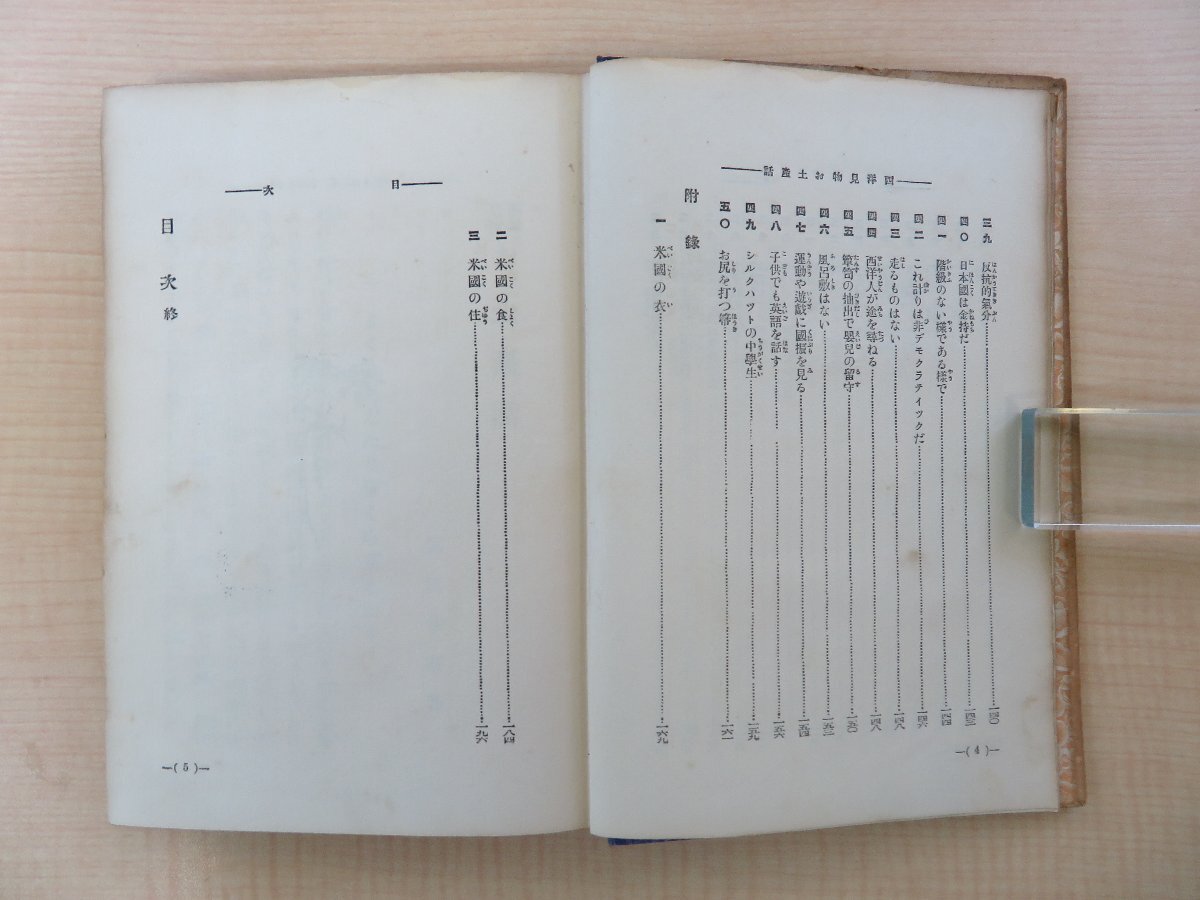 西洋見物お土產話
三九 反抗的氣分 一四〇
四〇 日本國は金持だ 一四三
四一 階級のない樣である樣で 一四四
四二 これ計りは非デモクラティックだ 一四六
四三 走るものはない 一四八
四四 西洋人が途を尋ねる 一四八
四五 簞笥の抽出で嬰兒の留守 一五〇
四六 風呂敷はない 一五三
四七 運動や遊戲に國振を見る 一五四
四八 子供でも英語を話す 一五六
四九 シルクハツトの中學生 一五九
五〇 お尻を打つ箒 一六一
附錄
一 米國の衣 一六九
—( 4 )—
目次
二 米國の食 一八四
三 米國の住 一九六
目次終
—( 5 )—